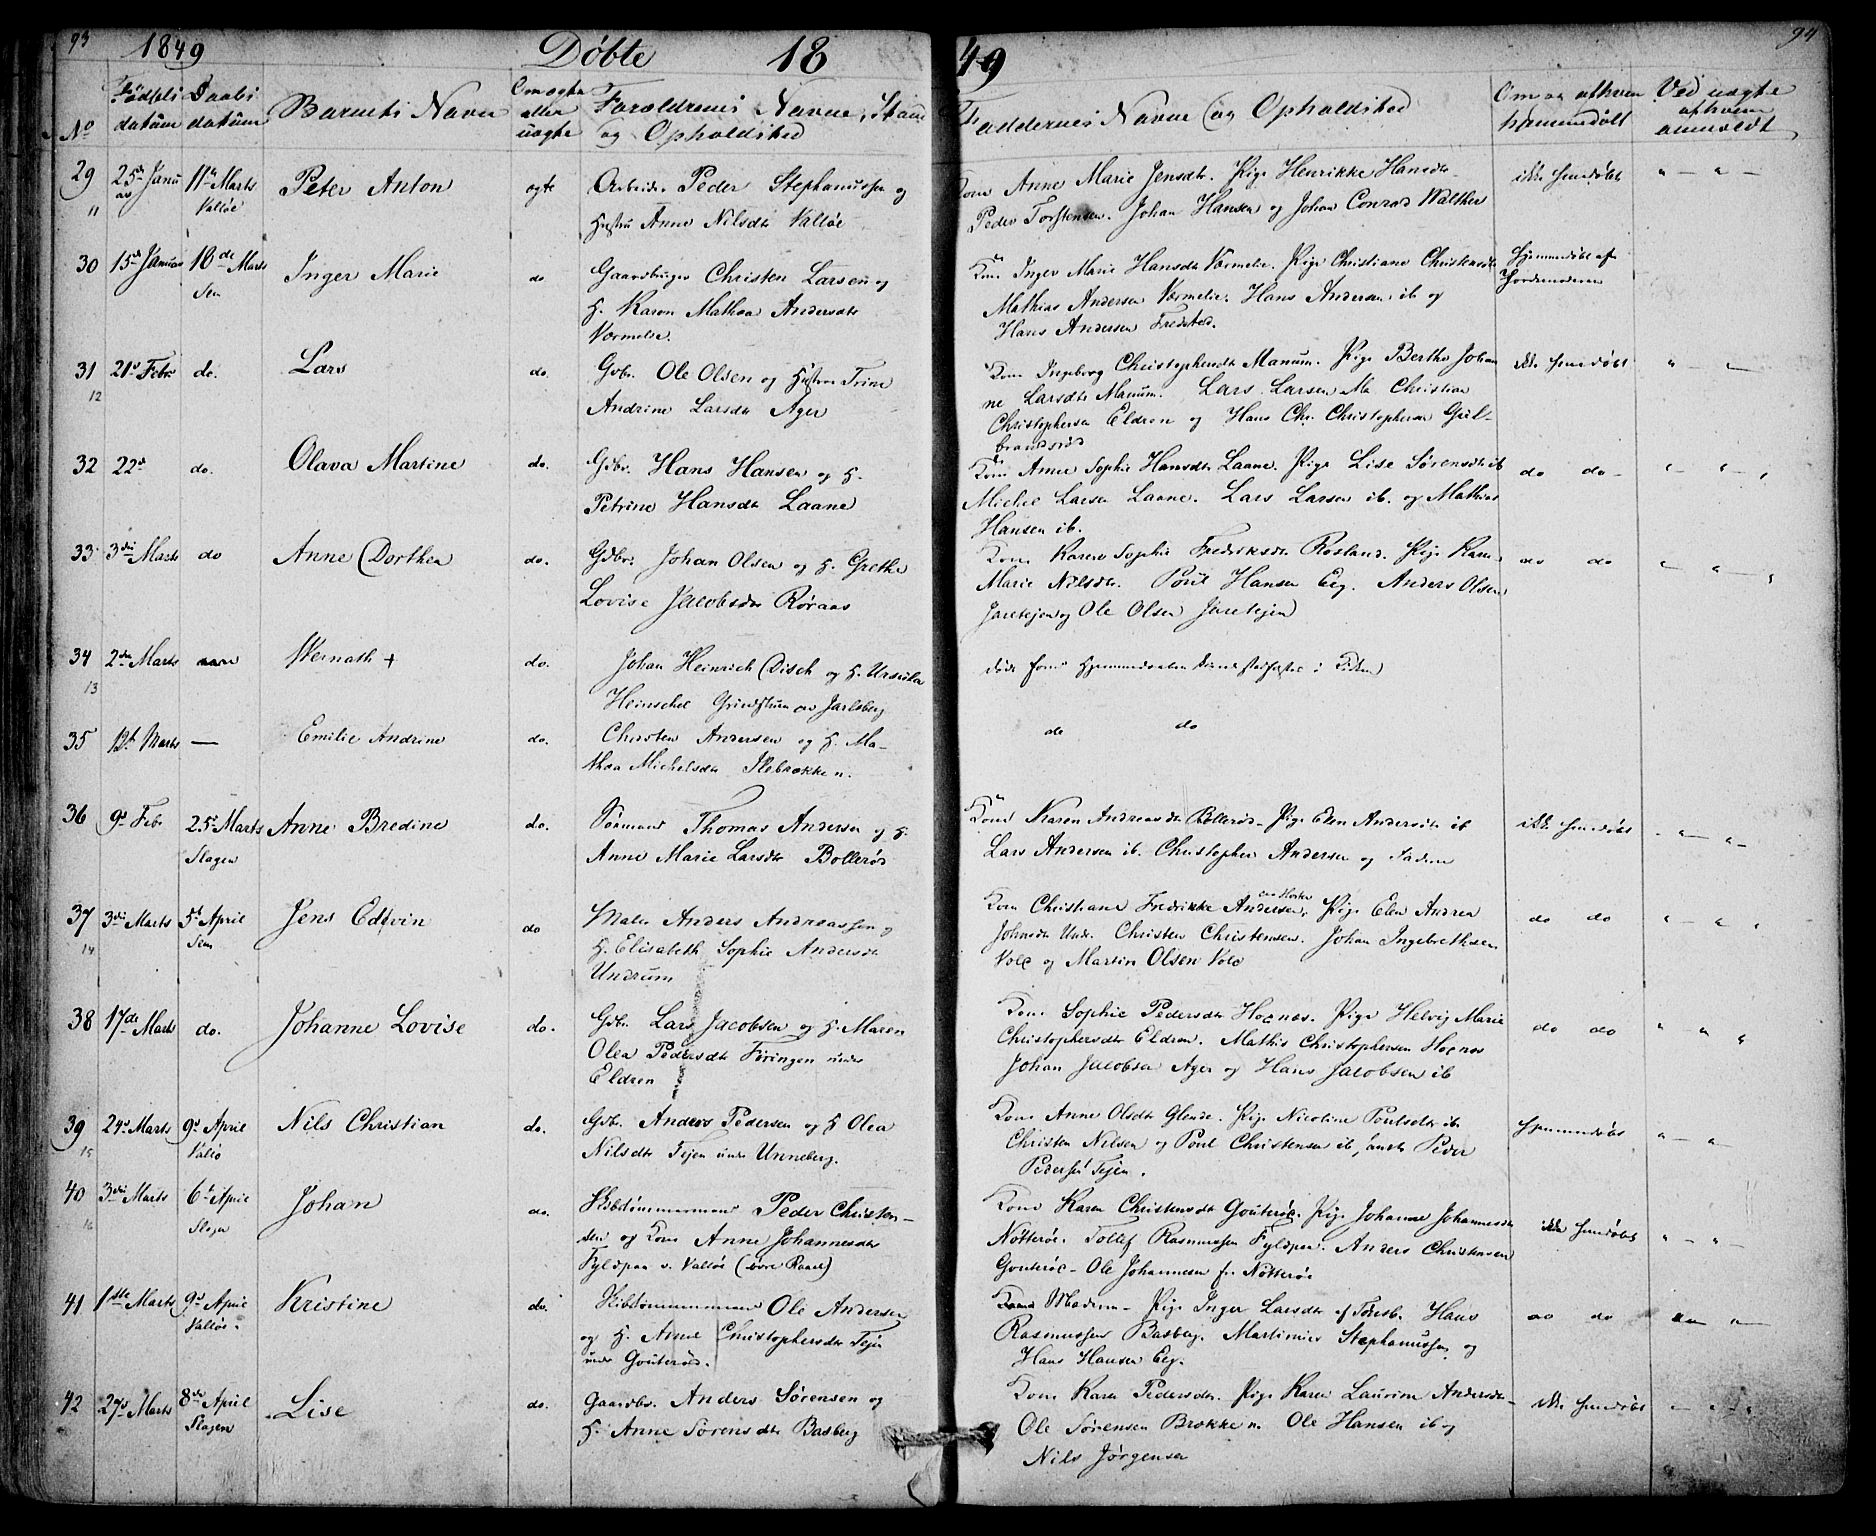 93
1849 Døbte 18
49
94
No Fødsels datum Daabs datum Barnets Navn Om ægte eller uægte Forældrenes Navne, Stand og Opholdsted
Faddernes Navne og Opholdsted Om og af hvem hjemmedøbt Ved uægte af hvem anmeldt
29 25de Januar 11te Marts Peter Anton ægte Arbeider Peder Stephanussen og
11 Valløe Hustru Anne Nilsdtr Valløe
Kone Anne Marie Jensdtr. Pige Henrikke Hansdtr. ikke hmdøbt " — " —
Peder Torstensen. Johan Hansen og Johan Conrad Walther
30 15de Januar 18de Marts Inger Marie do Gaardbruger Christen Larsen og
Sem H. Karen Mathea Andersdtr
Vermelie.
Kone Inger Marie Hansdtr Vermelie. Pige Christiane Christensdtr Hjemmedøbt af
Mathias Andersen Vermelie. Hans Andersen ib og Jordemoderen
Hans Andersen Fredsted.
31 21de Febr do. Lars do. Gbr. Ole Olsen og Hustru Trine
12 Andrine Larsdtr Ager
Kone Ingeborg Christophersdtr Manum. Pige Berthe Johan ikke hmdøbt " —
ne Larsdtr Manum. Lars Larsen Christian
Christophersen Eldren og Hans Chr. Christophersen Gul-
brandsrød
32 22de do. Olava Martine do. Gdbr. Hans Hansen og H.
Petrine Hansdtr Laane
Kone Anne Sophie Hansdtr Laane. Pige Lise Sørensdtr ib do do — " — " — "
Michel Larsen Laane. Lars Larsen ib. og Mathias
Hansen ib.
33 3die Marts do Anne Dorthea do. Gdbr. Johan Olsen og H. Grethe
Lovise Jacobsdtr Røraas
Kone Karen Sophie Fredriksdtr Rosland. Pige Karen do do " — " — "
Marie Nilsdtr. Poul Hansen Eeg. Anders Olsen
Jaretejen og Ole Olsen Jaretejen
34 2den Marts Wernath + do. Johan Heinrich Disch og H. Ursula
13 Heinschel Jarlsberg
35 12te Marts — Emilie Andrine do. Christen Andersen og H. Ma-
thea Michelsdtr Ilebrække n.
do do
36 9de Febr 25de Marts Anne Bredine do. Sømand Thomas Andersen og H.
Slagen Anne Marie Larsdtr Bollerød
Kone Karen Andreasdtr Bollerød. Pige Elen Andersdtr ib ikke hmdøbt " — " —
Lars Andersen ib. Christopher Andersen og Faderen
37 3die Marts 5te April Jens Edevin do Maler Anders Andreassen og
14 Sem H. Elisabeth Sophie Andersdtr
Undrum
Kone Christiane Fredrikke Andersen, Pige Elen Andrea do do " — " "
Johnsdtr Undr. Christen Christensen. Johan Ingebrethsen
Vole og Martin Olsen Vole
38 17de Marts do. Johanne Lovise do. Gdbr. Lars Jacobsen og H. Maren
Olea Pedersdtr Føringen under
Eldren
Kone Sophie Pedersdtr Hognes. Pige Helvig Marie do do " " "
Christophersdtr Eldren. Mathis Christophersen Hognes
Johan Jacobsen Ager og Hans Jacobsen ib
39 24de Marts 9de April Nils Christian do. Gdbr. Anders Pedersen og H Olea
15 Vallø Nilsdtr Tejen under Unneberg.
Kone Anne Olsdtr Glende. Pige Nicoline Poulsdtr ib hjemmedøbt " — "
Christen Nilsen og Poul Christensen ib, samt Peder
Pedersen Tejen.
40 3die Marts 6te April Johan do. Skibstømmermand Peder Christen-
16 Slagen sen og Kone Anne Johannesdtr
Fyldpaa v. Valløe (øvre Raael)
Kone Karen Christensdtr Gouterøe. Pige Johanne Johannesdtr ikke hmdøbt " — " —
Nøtterøe. Tollef Rasmussen Fyldpaa. Anders Christensen
Gouterøe. Ole Johannessen fr. Nøtterøe
41 1ste Marts 9de April Kristine do. Skibstømmermand Ole Andersen
Valløe. og H. Anne Christophersdtr Tejen
under Gouterød.
Moderen. Pige Inger Larsdtr af Tønsb. Hans do do
Rasmussen Basberg. Martinius Stephanussen og
Hans Hansen Eeg.
42 27de Marts 8de April Lise do. Gaardbr. Anders Sørensen og
Slagen H. Anne Sørensdtr Basberg
Kone Karen Pedersdtr. Pige Karen Laurine Andersdtr. ikke hmdøbt
Ole Sørensen Brække n. Ole Hansen ib og
Nils Jørgensen